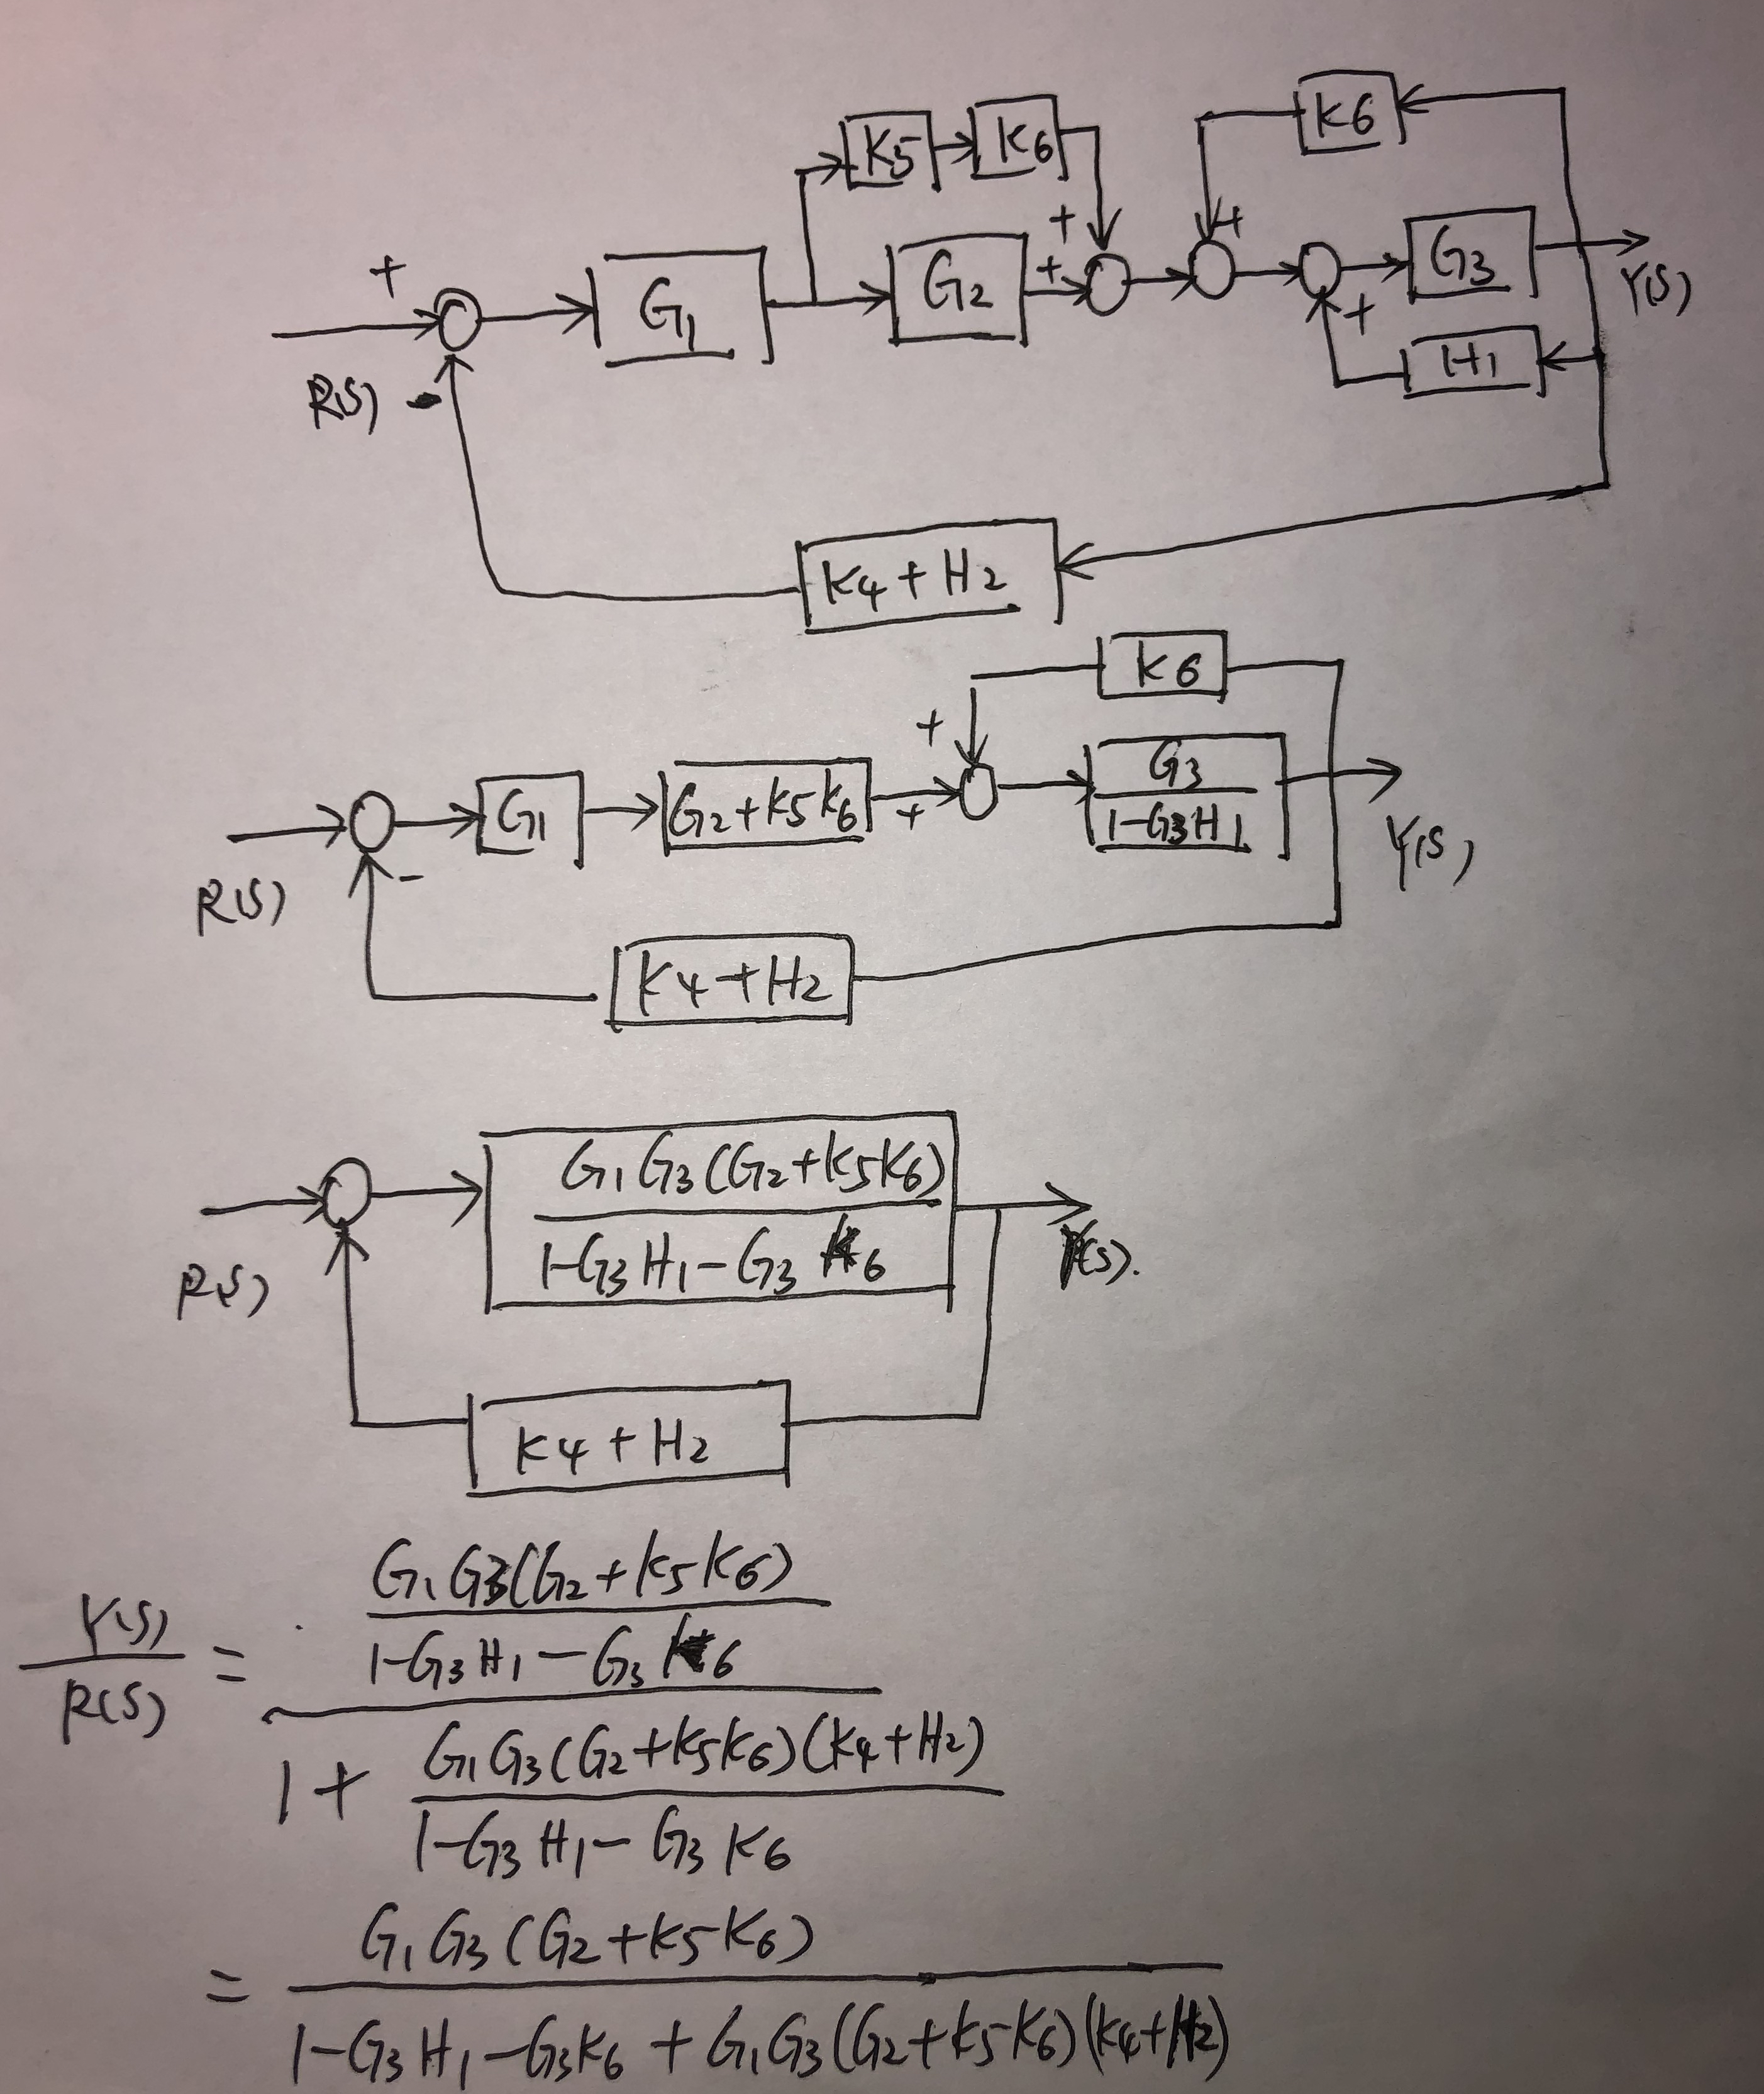 K6
K5 K6
+ +
+ G1 G2 + G3
R(S) - + H1 Y(S)
K4+H2
K6
+
G1 G2+K5K6 + G3/(1-G3H1)
R(S) - Y(S)
K4+H2
G1G3(G2+K5K6)
1-G3H1-G3K6
R(S) Y(S).
K4+H2
G1G3(G2+K5K6)
Y(S)/R(S) = 1-G3H1-G3K6
1+ G1G3(G2+K5K6)(K4+H2)
1-G3H1-G3K6
= G1G3(G2+K5K6)
1-G3H1-G3K6+G1G3(G2+K5K6)(K4+H2)